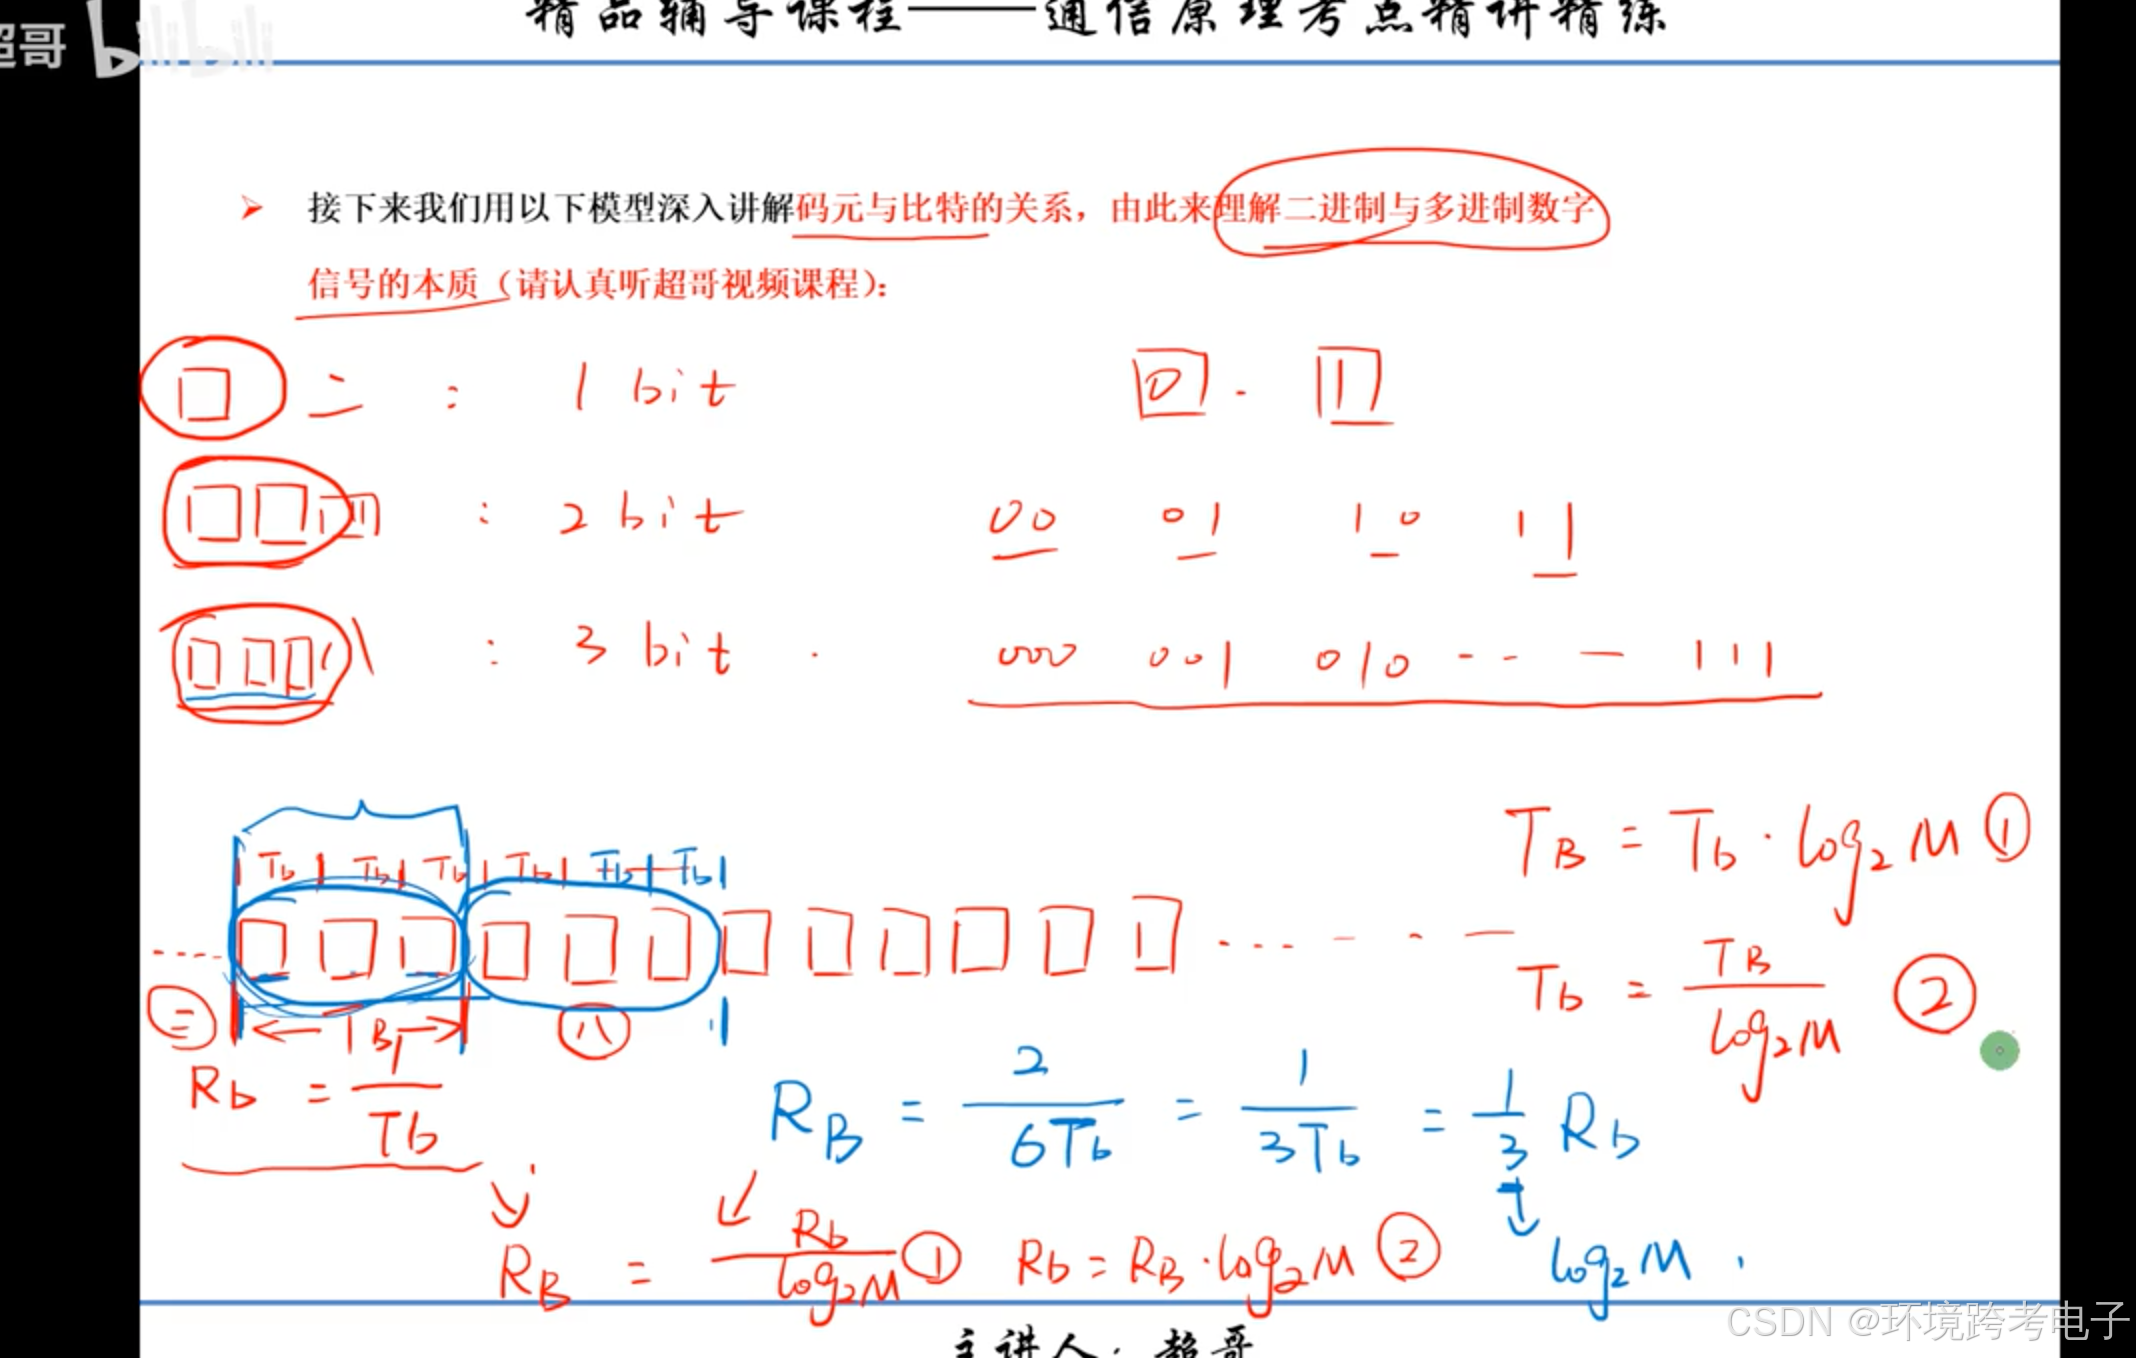 精品辅导课程——通信原理考点精讲精练
超哥 bilibili
接下来我们用以下模型深入讲解码元与比特的关系，由此来理解二进制与多进制数字
信号的本质（请认真听超哥视频课程）：
二 : 1 bit 0 . 1
四 : 2 bit 00 01 10 11
八 : 3 bit . 000 001 010 --- 111
Tb Tb Tb Tb Tb Tb
TB = Tb · log₂M ①
Tb = TB / log₂M ②
二 TB 八
Rb = 1 / Tb
RB = 2 / 6Tb = 1 / 3Tb = 1/3 Rb
log₂M
RB = Rb / log₂M ① Rb = RB · log₂M ②
主讲人：超哥
CSDN @环境跨考电子